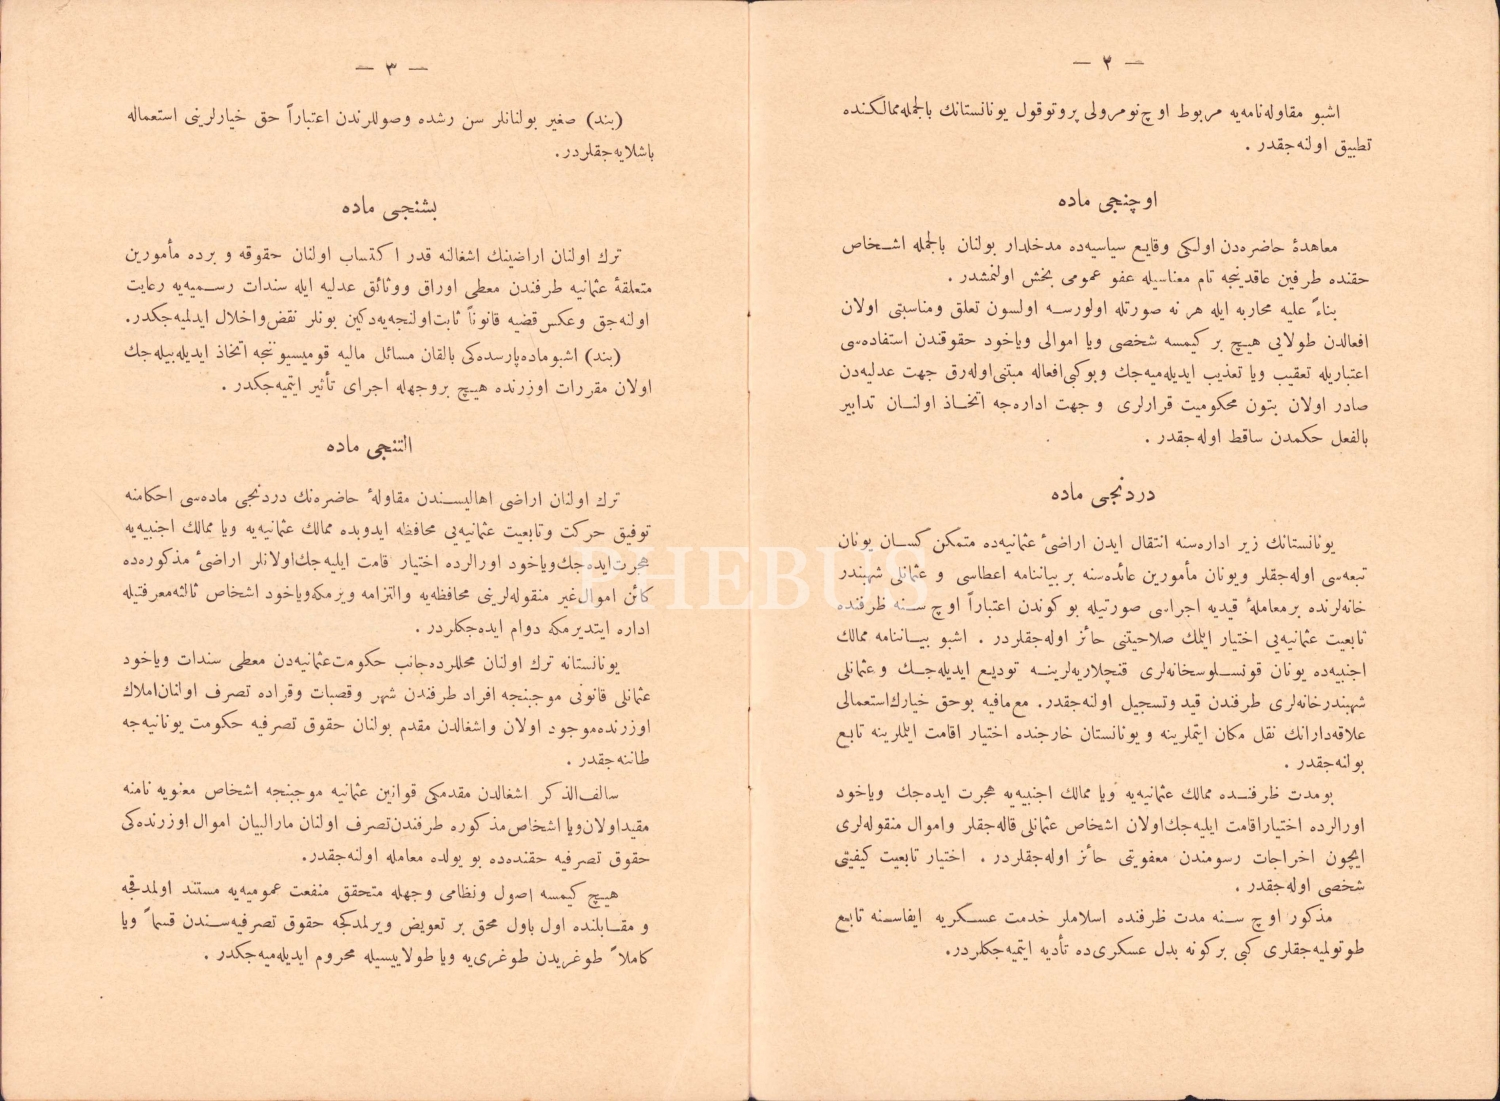 — ٢ —
اشبو مقاوله‌نامه‌یه مربوط اوچ نومرولی پروتوقول یونانستانك بالجمله ممالكنده
تطبیق اولنه‌جقدر .
اوچنجی ماده
معاهدهٔ حاضره‌دن اولكی وقایع سیاسیه‌ده مدخلدار بولنان بالجمله اشخاص
حقنده طرفین عاقدینجه تام معناسیله عفو عمومی بخش اولنمشدر .
بناءً علیه محاربه ایله هر نه صورتله اولورسه اولسون تعلق ومناسبتی اولان
افعالدن طولایی هیچ بر كیمسه شخصی ویا اموالی ویاخود حقوقندن استفاده‌سی
اعتباریله تعقیب ویا تعذیب ایدیله‌میه‌جك وبوكبی افعاله مبتنی اوله‌رق جهت عدلیه‌دن
صادر اولان بتون محكومیت قرارلری وجهت اداره‌جه اتخاذ اولنان تدابیر
بالفعل حكمدن ساقط اوله‌جقدر .
دردنجی ماده
یونانستانك زیر اداره‌سنه انتقال ایدن اراضئ عثمانیه‌ده متمكن كسان یونان
تبعه‌سی اوله‌جقلر ویونان مأمورین عائده‌سنه بر بیاننامه اعطاسی و عثمانلی شهبندر
خانه‌لرنده بر معاملهٔ قیدیه اجراسی صورتیله بو كوندن اعتباراً اوچ سنه ظرفنده
تابعیت عثمانیه‌یی اختیار ایتمك صلاحیتنی حائز اوله‌جقلردر . اشبو بیاننامه ممالك
اجنبیه‌ده یونان قونسلوسخانه‌لری قنچلاریه‌لرینه تودیع ایدیله‌جك وعثمانلی
شهبندرخانه‌لری طرفندن قید وتسجیل اولنه‌جقدر. مع‌مافیه بوحق خیارك استعمالی
علاقه‌دارانك نقل مكان ایتملرینه ویونانستان خارجنده اختیار اقامت ایتملرینه تابع
بولنه‌جقدر .
بومدت ظرفنده ممالك عثمانیه‌یه ویا ممالك اجنبیه‌یه هجرت ایده‌جك ویاخود
اورالرده اختیار اقامت ایلیه‌جك اولان اشخاص عثمانلی قاله‌جقلر واموال منقوله‌لری
ایچون اخراجات رسومندن معفویتی حائز اوله‌جقلردر . اختیار تابعیت كیفیتی
شخصی اوله‌جقدر .
مذكور اوچ سنه مدت ظرفنده اسلاملر خدمت عسكریه ایفاسنه تابع
طوتولمیه‌جقلری كبی بركونه بدل عسكری‌ده تأدیه ایتمیه‌جكلردر.
— ٣ —
(بند) صغیر بولنانلر سن رشده وصوللرندن اعتباراً حق خیارلرینی استعماله
باشلایه‌جقلردر.
بشنجی ماده
ترك اولنان اراضینك اشغالنه قدر اكتساب اولنان حقوقه و برده مأمورین
متعلقهٔ عثمانیه طرفندن معطی اوراق ووثائق عدلیه ایله سندات رسمیه‌یه رعایت
اولنه‌جق وعكس قضیه قانوناً ثابت اولنجه‌یه‌دكین بونلر نقض واخلال ایدلمیه‌جكدر.
(بند) اشبو ماده پارسده‌كی بالقان مسائل مالیه قومیسیوننجه اتخاذ ایدیله‌بیله‌جك
اولان مقررات اوزرنده هیچ بر وجهله اجرای تأثیر ایتمیه‌جكدر .
التنجی ماده
ترك اولنان اراضی اهالیسندن مقاولهٔ حاضره‌نك دردنجی ماده‌سی احكامنه
توفیق حركت وتابعیت عثمانیه‌یی محافظه ایدوبده ممالك عثمانیه‌یه ویا ممالك اجنبیه‌یه
هجرت ایده‌جك ویاخود اورالرده اختیار اقامت ایلیه‌جك اولانلر اراضئ مذكوره‌ده
كائن اموال غیر منقوله‌لرینی محافظه‌یه والتزامه ویرمكه ویاخود اشخاص ثالثه معرفتیله
اداره ایتدیرمكه دوام ایده‌جكلردر .
یونانستانه ترك اولنان محللرده جانب حكومت عثمانیه‌دن معطی سندات ویاخود
عثمانلی قانونی موجبنجه افراد طرفندن شهر وقصبات وقراده تصرف اولنان املاك
اوزرنده موجود اولان واشغالدن مقدم بولنان حقوق تصرفیه حكومت یونانیه‌جه
طاننه‌جقدر .
سالف‌الذكر اشغالدن مقدمكی قوانین عثمانیه موجبنجه اشخاص معنویه نامنه
مقید اولان ویا اشخاص مذكوره طرفندن تصرف اولنان مارالبیان اموال اوزرنده‌كی
حقوق تصرفیه حقنده‌ده بو یولده معامله اولنه‌جقدر.
هیچ كیمسه اصول ونظامی وجهله متحقق منفعت عمومیه‌یه مستند اولمدقجه
و مقابلنده اول باول محق بر تعویض ویرلمدكجه حقوق تصرفیه‌سندن قسماً ویا
كاملاً طوغریدن طوغری‌یه ویا طولاییسیله محروم ایدیله‌میه‌جكدر .
PHEBUS